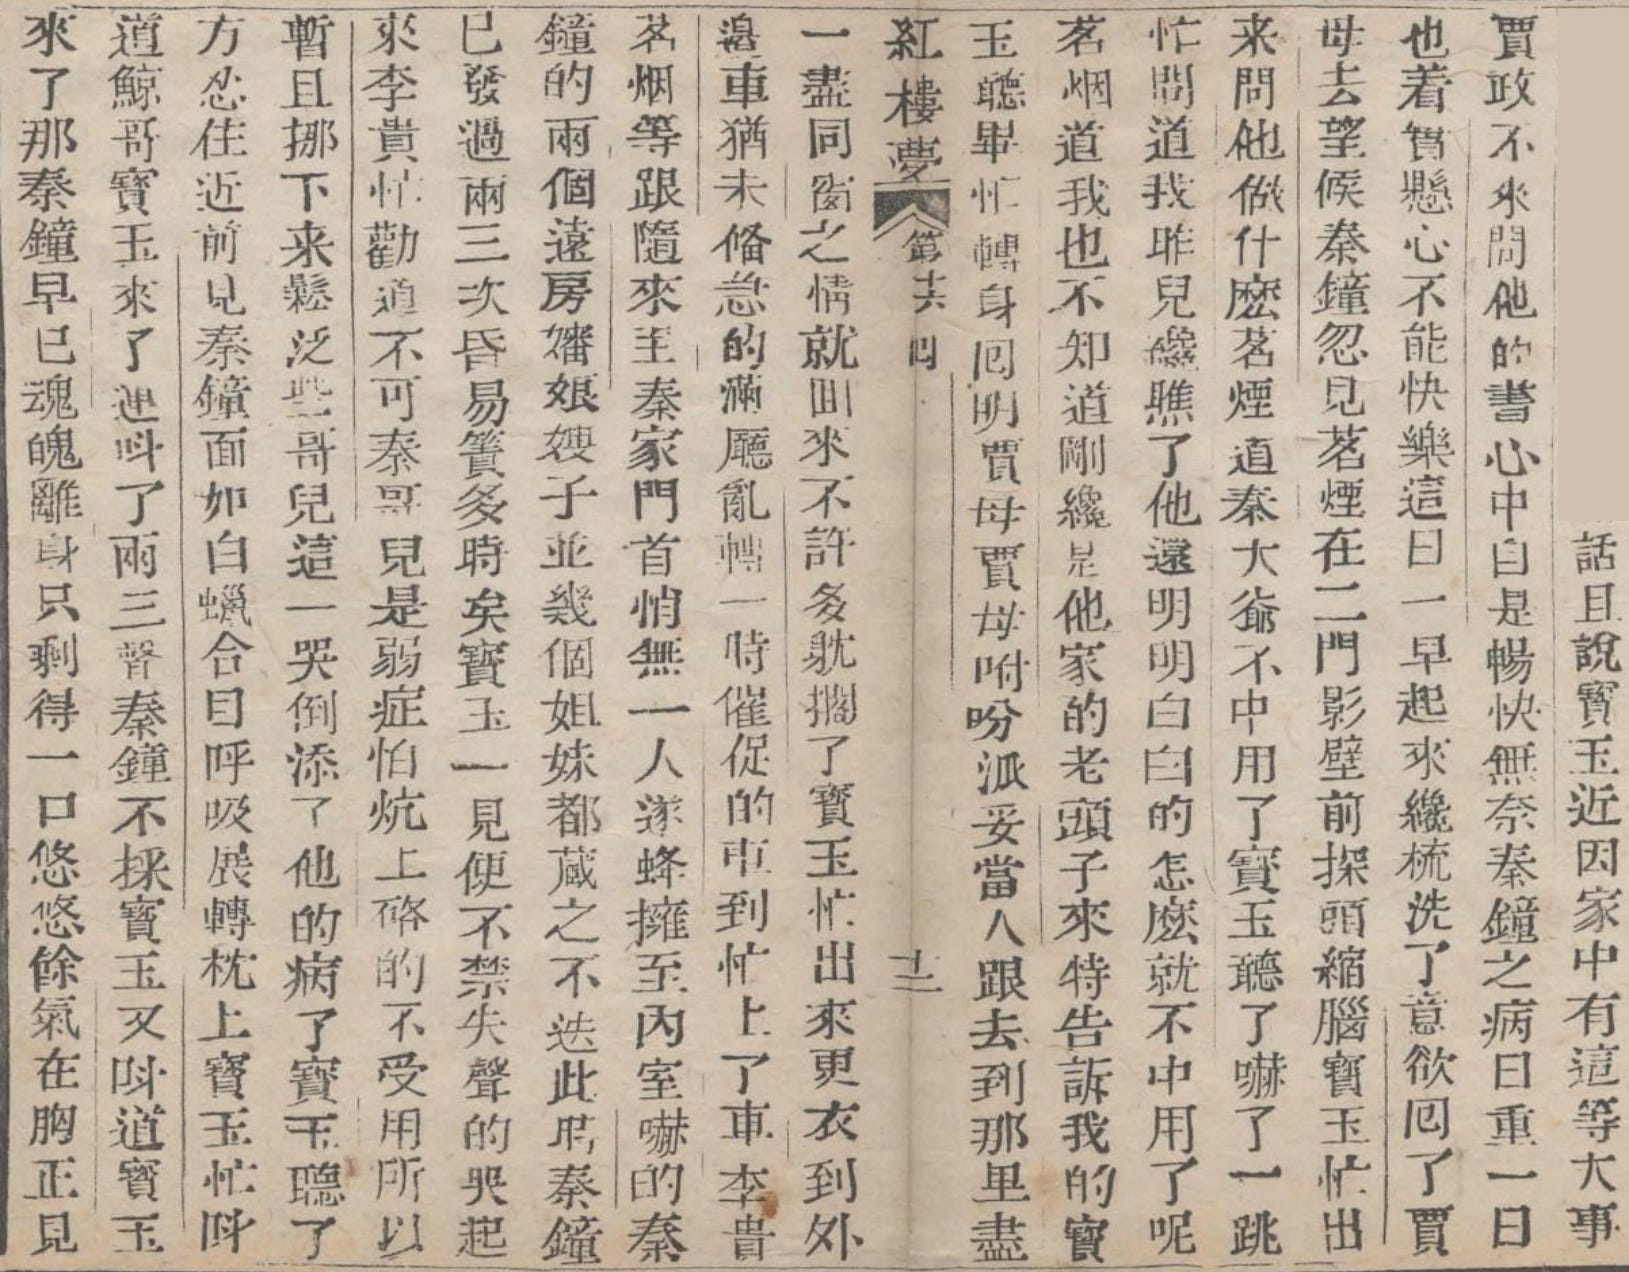 話且說寳玉近因家中有這等大事
賈政不來問他的書心中自是暢快無奈秦鐘之病日重一日
也着實懸心不能快樂這日一早起來纔梳洗了意欲囘了賈
母去望候秦鐘忽見茗煙在二門影壁前探頭縮腦寳玉忙出
来問他做什麽茗煙道秦大爺不中用了寳玉聽了嚇了一跳
忙問道我昨兒纔瞧了他還明明白白的怎麽就不中用了呢
茗烟道我也不知道剛纔是他家的老頭子來特告訴我的寳
玉聽畢忙轉身囘明賈母賈母吩咐派妥當人跟去到那里盡
紅樓夢 第十六囘 十二
一盡同窗之情就囬來不許多躭擱了寳玉忙出來更衣到外
邊車猶未俻急的滿廳亂轉一時催促的車到忙上了車李貴
茗烟等跟隨來至秦家門首悄無一人遂蜂擁至內室嚇的秦
鐘的兩個遠房嬸娘嫂子並幾個姐妹都藏之不迭此時秦鐘
已發過兩三次昏易簀多時矣寳玉一見便不禁失聲的哭起
來李貴忙勸道不可秦哥兒是弱症怕炕上硌的不受用所以
暫且挪下来鬆泛些哥兒這一哭倒添了他的病了寳玉聽了
方忍住近前見秦鐘面如白蠟合目呼吸展轉枕上寳玉忙呌
道鯨哥寳玉來了連呌了兩三聲秦鐘不採寳玉又呌道寳玉
來了那秦鐘早已魂魄離身只剩得一口悠悠餘氣在胸正見